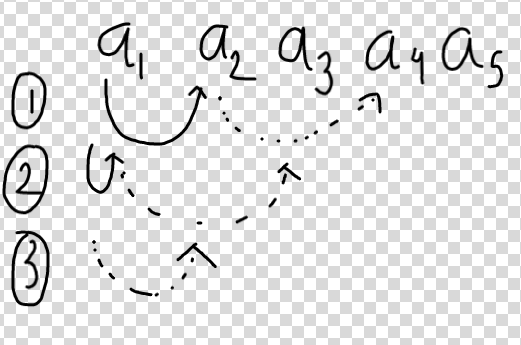 a₁ a₂ a₃ a₄ a₅
①
②
③